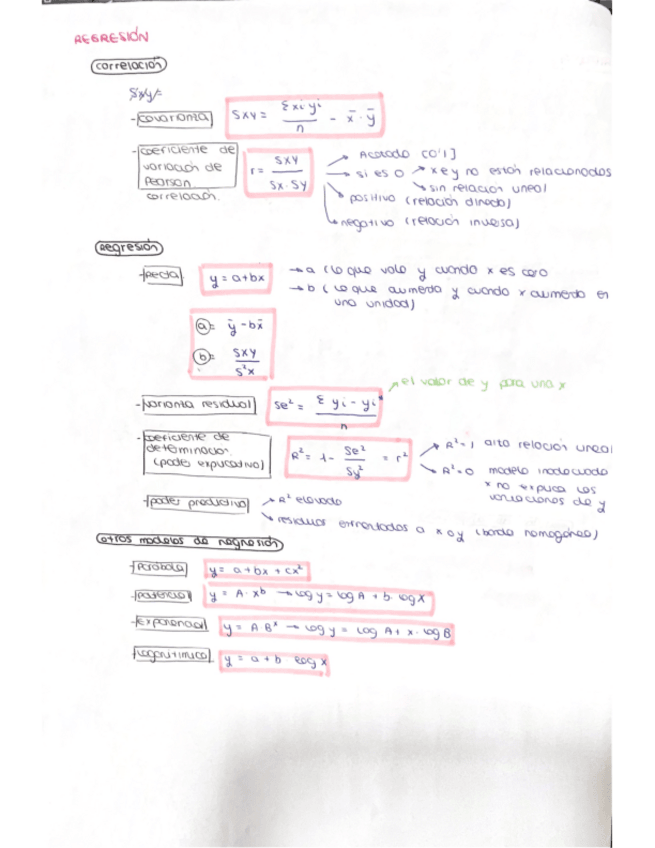 REGRESIÓN
correlación
Sxy=
- covarianza Sxy = Σxi yi / n - x̄ · ȳ
- coeficiente de variación de Pearson correlación. r = Sxy / Sx·Sy
→ Acotado [0'1]
→ si es 0 → x e y no están relacionados
→ sin relación lineal
→ positivo (relación directa)
→ negativo (relación inversa)
Regresión
- recta y = a+bx
→ a (lo que vale y cuando x es cero
→ b (lo que aumenta y cuando x aumenta en una unidad)
a = ȳ - bx̄
b = Sxy / S²x
→ el valor de y para una x
- varianza residual Se² = Σ yi - yi* / n
- coeficiente de determinación (poder explicativo) R² = 1 - Se² / Sy² = r²
→ R²=1 alta relación lineal
→ R²=0 modelo inadecuado
x no explica las variaciones de y
- poder predictivo → R² elevado
→ residuos enfrentados a x o y (banda homogénea)
otros modelos de regresión
- Parábola y = a + bx + cx²
- potencial y = A · xᵇ → log y = log A + b · log x
- exponencial y = A Bˣ → log y = log A + x · log B
- logarítmica y = a + b log x